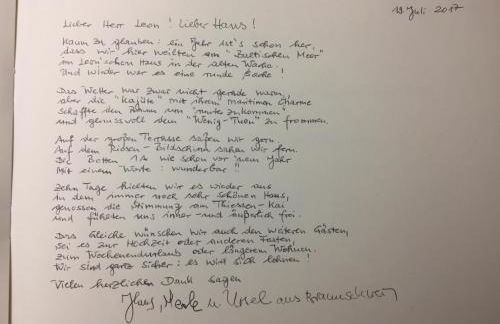 19. Juli 2017
Lieber Herr Leon! Lieber Hans!
Kaum zu glauben: ein Jahr ist's schon her,
dass wir hier weilten am "Baltischen Meer"
im Leon'schen Haus in der alten
und wieder war es eine runde Sache!
Das Wetter war zwar nicht gerade warm,
aber die "Kajüte" mit ihrem maritimen Charme
schaffte den Raum um "runterzukommen"
und genussvoll dem "Wenig-Tuen" zu frommen.
Auf der großen Terrasse saßen wir gern,
Auf dem Riesen-Bildschirm sahen wir fern.
Die Betten 1A wie schon vor 'nem Jahr
Mit einem Worte: wunderbar!!
Zehn Tage hielten wir es wieder aus
in dem immer noch sehr schönen Haus,
genossen die Stimmung am Thiessen-Kai
und fühlten uns inner- und äußerlich frei.
Das Gleiche wünschen wir auch den weiteren Gästen,
sei es zur Hochzeit oder anderen Festen,
zum Wochenendurlaub oder längerem Wohnen.
Wir sind ganz sicher: es wird sich lohnen!
Vielen herzlichen Dank sagen
Hans, u Ursel aus Braunschweig